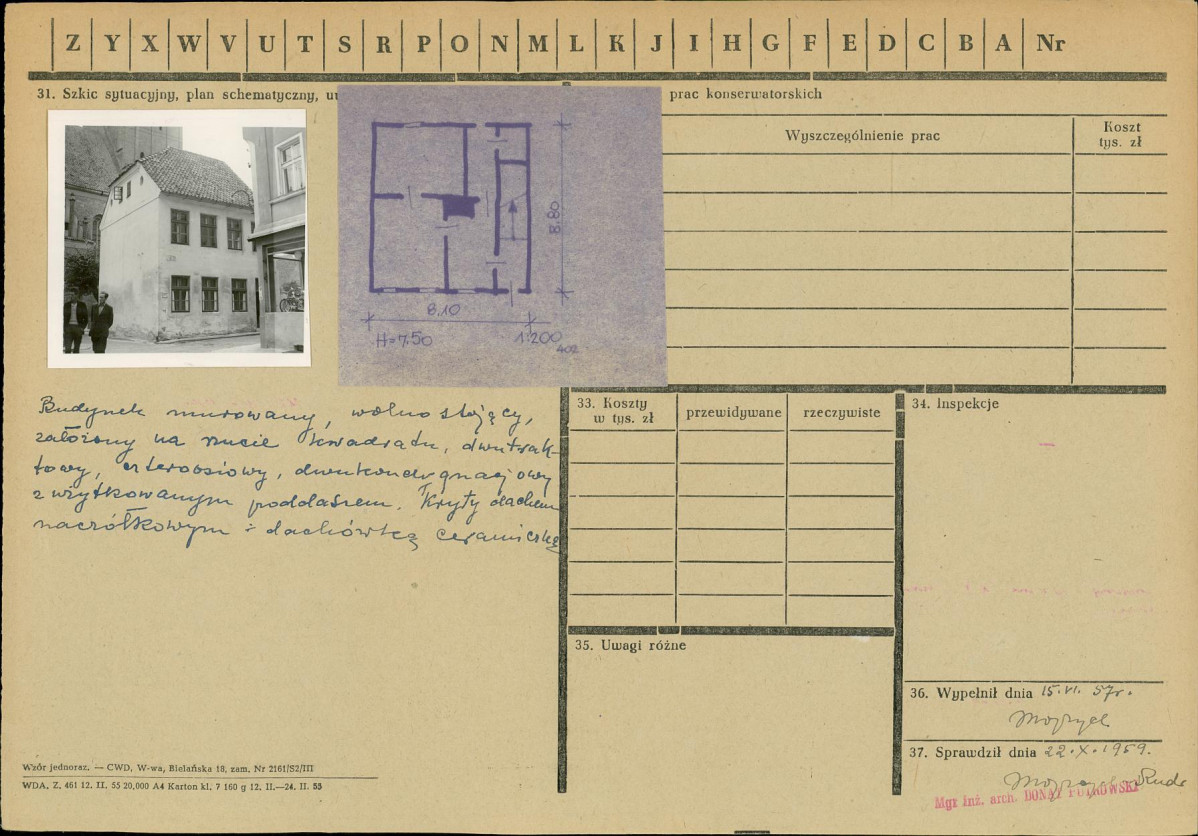 Z Y X W V U T S R P O N M L K J I H G F E D C B A Nr
31. Szkic sytuacyjny, plan schematyczny,
prac konserwatorskich
Wyszczególnienie prac
Koszt
tys. zł
8.80
8.10
H=7.50
1:200
402
Budynek murowany, wolno stojący,
założony na rzucie kwadratu, dwutrak-
towy, czteroosiowy, dwukondygnacjowy
z użytkowanym poddaszem. Kryty dachem
naczółkowym z dachówką ceramiczną
33. Koszty
w tys. zł
przewidywane
rzeczywiste
34. Inspekcje
35. Uwagi różne
36. Wypełnił dnia 15.VI. 57r.
37. Sprawdził dnia 22.X.1959.
Mgr inż. arch.
Wzór jednoraz. — CWD, W-wa, Bielańska 18, zam. Nr 2161/S2/III
WDA. Z. 461 12. II. 55 20,000 A4 Karton kl. 7 160 g 12. II.—24. II. 55